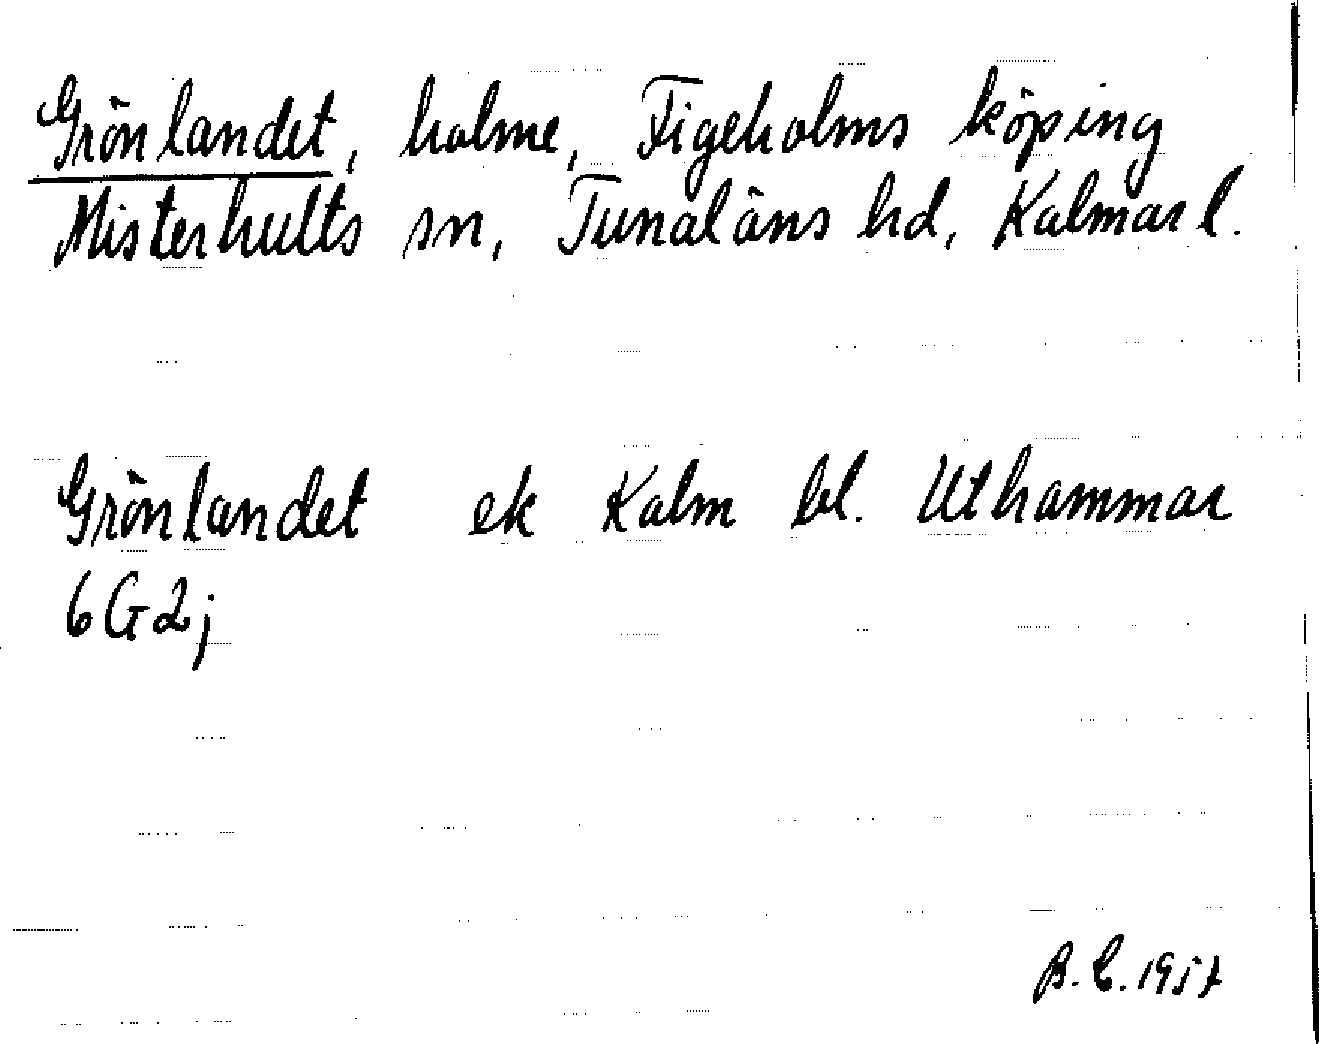 Grönlandet, holme, Figeholms köping
Misterhults sn, Tunaläns hd, Kalmar l.
Grönlandet ek Kalm bl. Uthammar
6G2j
B.E. 1957